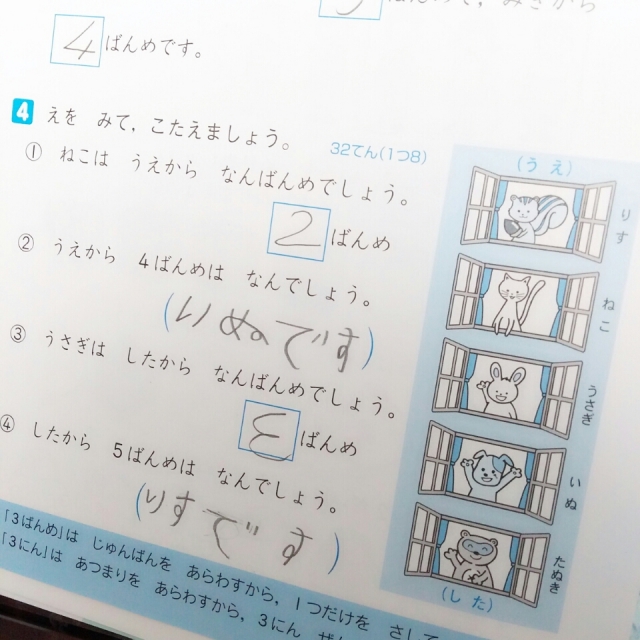 4 ばんめです。
4 えを みて，こたえましょう。 32てん(1つ8)
① ねこは うえから なんばんめでしょう。
2 ばんめ
② うえから 4ばんめは なんでしょう。
(いぬです)
③ うさぎは したから なんばんめでしょう。
ばんめ
④ したから 5ばんめは なんでしょう。
(りすです)
(うえ)
りす
ねこ
うさぎ
いぬ
たぬき
(した)
「3ばんめ」は じゅんばんを あらわすから，1つだけを さして
「3にん」は あつまりを あらわすから，3にん